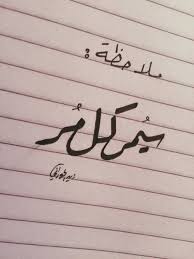 ملاحظة :
سيُمر كل مُر